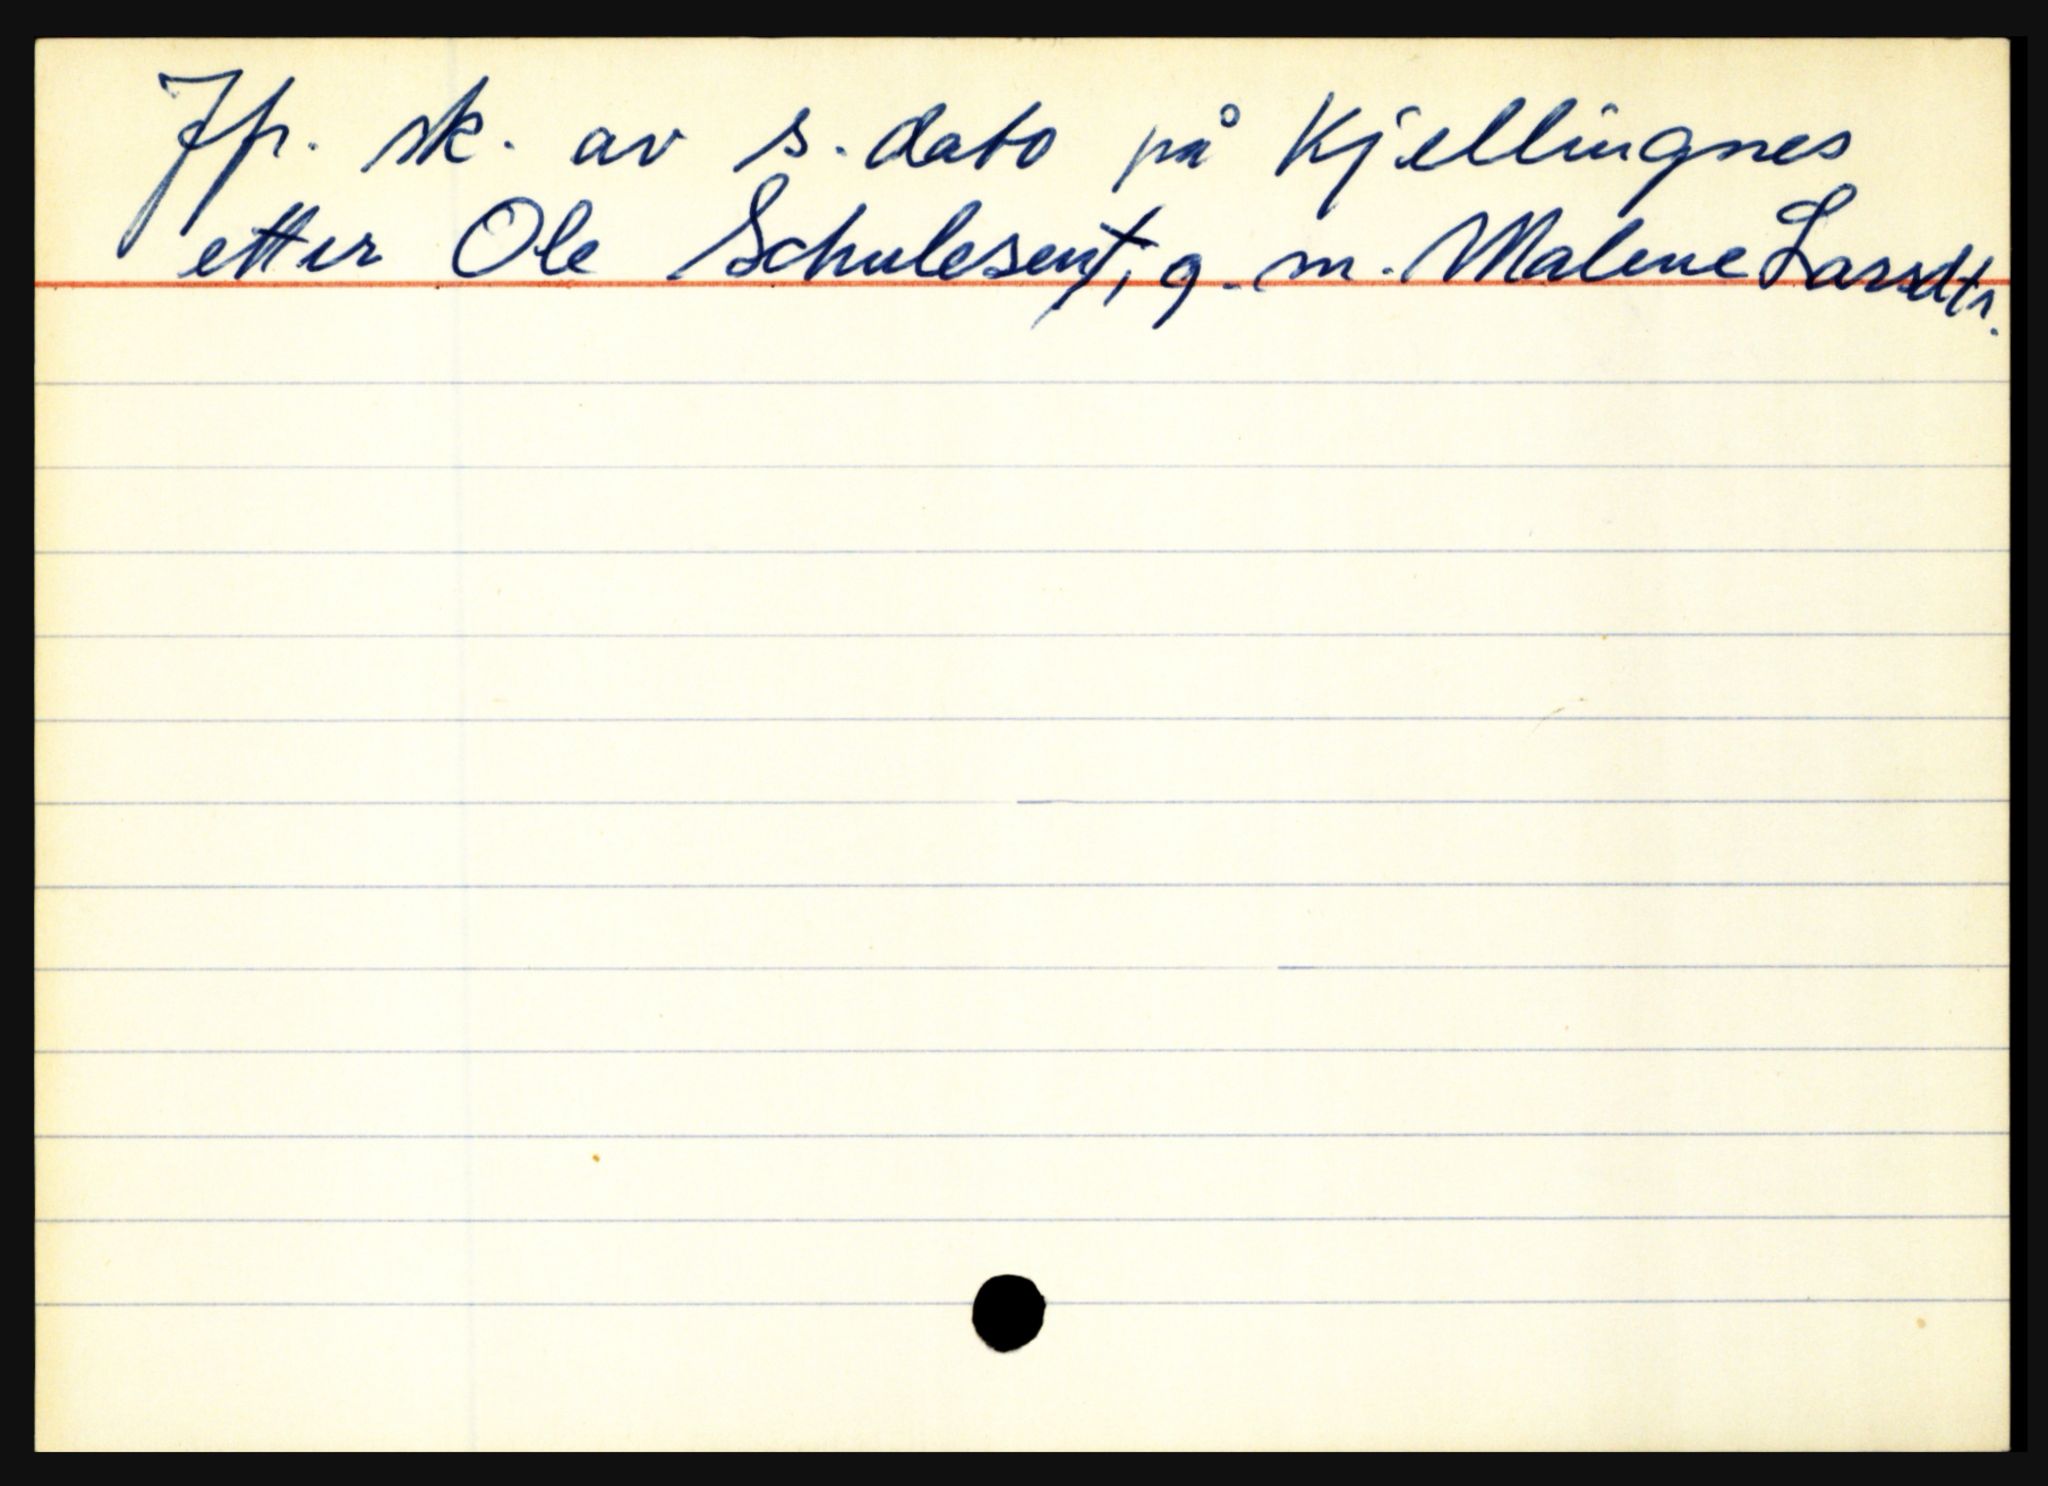 Jfr. sk. av s. dato på Kjellingnes
etter Ole Schulesen†, g. m. Malene Larsdtr.